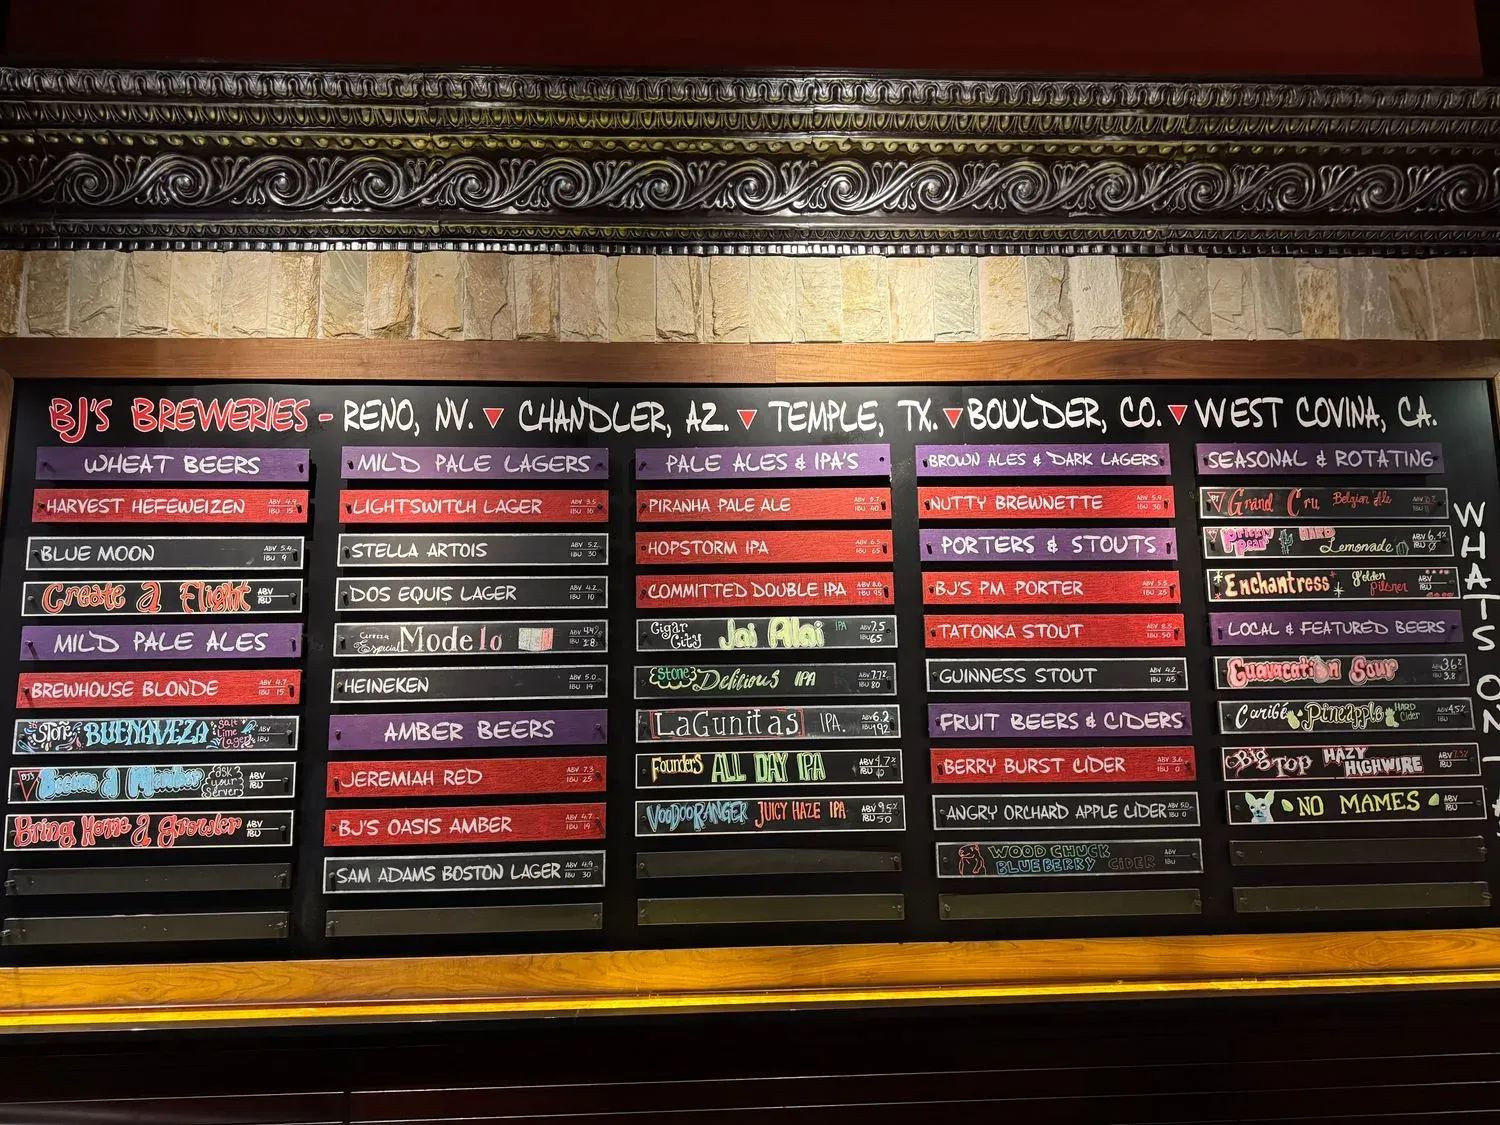 BJ'S BREWERIES - RENO, NV. CHANDLER, AZ. TEMPLE, TX. BOULDER, CO. WEST COVINA, CA.
WHEAT BEERS
HARVEST HEFEWEIZEN ABV 4.9 IBU 15
BLUE MOON ABV 5.4 IBU 9
Create a Flight ABV IBU
MILD PALE ALES
BREWHOUSE BLONDE ABV 4.7 IBU 15
Stone BUENAVEZA Salt Lime Lager ABV IBU
BJ'S Become a Member ask your Server ABV IBU
Bring Home a growler ABV IBU
MILD PALE LAGERS
LIGHTSWITCH LAGER ABV 3.5 IBU 16
STELLA ARTOIS ABV 5.2 IBU 30
DOS EQUIS LAGER ABV 4.2 IBU 10
Cerveza Especial Modelo ABV 4.4% IBU 18
HEINEKEN ABV 5.0 IBU 19
AMBER BEERS
JEREMIAH RED ABV 7.3 IBU 25
BJ'S OASIS AMBER ABV 4.7 IBU 19
SAM ADAMS BOSTON LAGER ABV 4.9 IBU 30
PALE ALES & IPA'S
PIRANHA PALE ALE ABV 5.7 IBU 40
HOPSTORM IPA ABV 6.5 IBU 65
COMMITTED DOUBLE IPA ABV 8.6 IBU 95
Cigar City Jai Alai IPA ABV 7.5 IBU 65
Stone Delicious IPA ABV 7.7% IBU 80
LaGunitas IPA. ABV 6.2 IBU 92
Founders ALL DAY IPA ABV 4.7%
VOODOO RANGER JUICY HAZE IPA ABV 9.5% IBU 50
BROWN ALES & DARK LAGERS
NUTTY BREWNETTE ABV 5.9 IBU 30
PORTERS & STOUTS
BJ'S PM PORTER ABV 5.5 IBU 25
TATONKA STOUT ABV 8.5 IBU 50
GUINNESS STOUT ABV 4.2 IBU 45
FRUIT BEERS & CIDERS
BERRY BURST CIDER ABV 3.6 IBU 0
ANGRY ORCHARD APPLE CIDER ABV 5.0 IBU 0
WOOD CHUCK BLUEBERRY CIDER ABV IBU
SEASONAL & ROTATING
BJ Grand Cru Belgian Ale
Prickly Pear HARD Lemonade ABV 6.4% IBU
Enchantress golden pilsner ABV IBU
LOCAL & FEATURED BEERS
Guavacation Sour ABV 3.6% IBU 3.8
Caribé Pineapple HARD Cider ABV 4.5% IBU
Big Top HAZY HIGHWIRE ABV IBU
NO MAMES ABV IBU
WHAT'S ON T